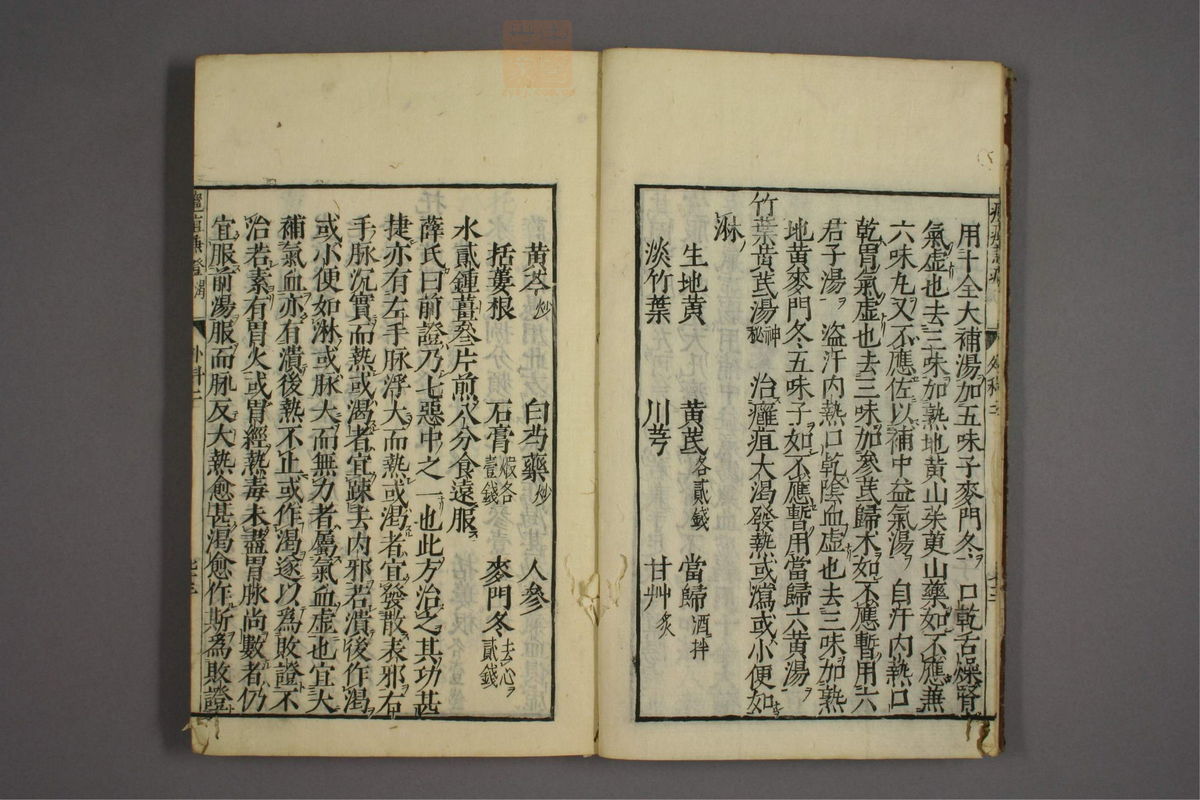 用十全大補湯加五味子麥門冬ヲ 口乾舌燥腎
氣虛也去三味加熟地黃山茱萸山藥如不應兼
六味丸又不應佐以補中益氣湯ヲ 自汗內熱口
乾胃氣虛也去三味加參芪歸朮如不應暫用六
君子湯ヲ 盜汗內熱口乾陰血虛也去三味加熟
地黃麥門冬五味子如不應暫用當歸六黃湯ヲ
竹葉黃芪湯 神秘 治癰疽大渴發熱或瀉或小便如
淋
生地黃 黃芪 各貳錢 當歸 酒拌
淡竹葉 川芎 甘艸 炙
黃芩 炒 白芍藥 炒 人參
括蔞根 石膏 煅各壹錢 麥門冬 去心ヲ貳錢
水貳鍾薑叄片煎八分食遠服
薛氏曰前證乃七惡中之一也此方治之其功甚
捷亦有左手脉浮大而熱或渴者宜發散表邪右
手脉沉實而熱或渴者宜踈去內邪若潰後作渴
或小便如淋或脉大而無力者屬氣血虛也宜大
補氣血亦有潰後熱不止或作渴遂以爲敗證不
治若素有胃火或胃經熱毒未盡胃脉尚數者仍
宜服前湯服而脉反大熱愈甚渴愈作斯爲敗證